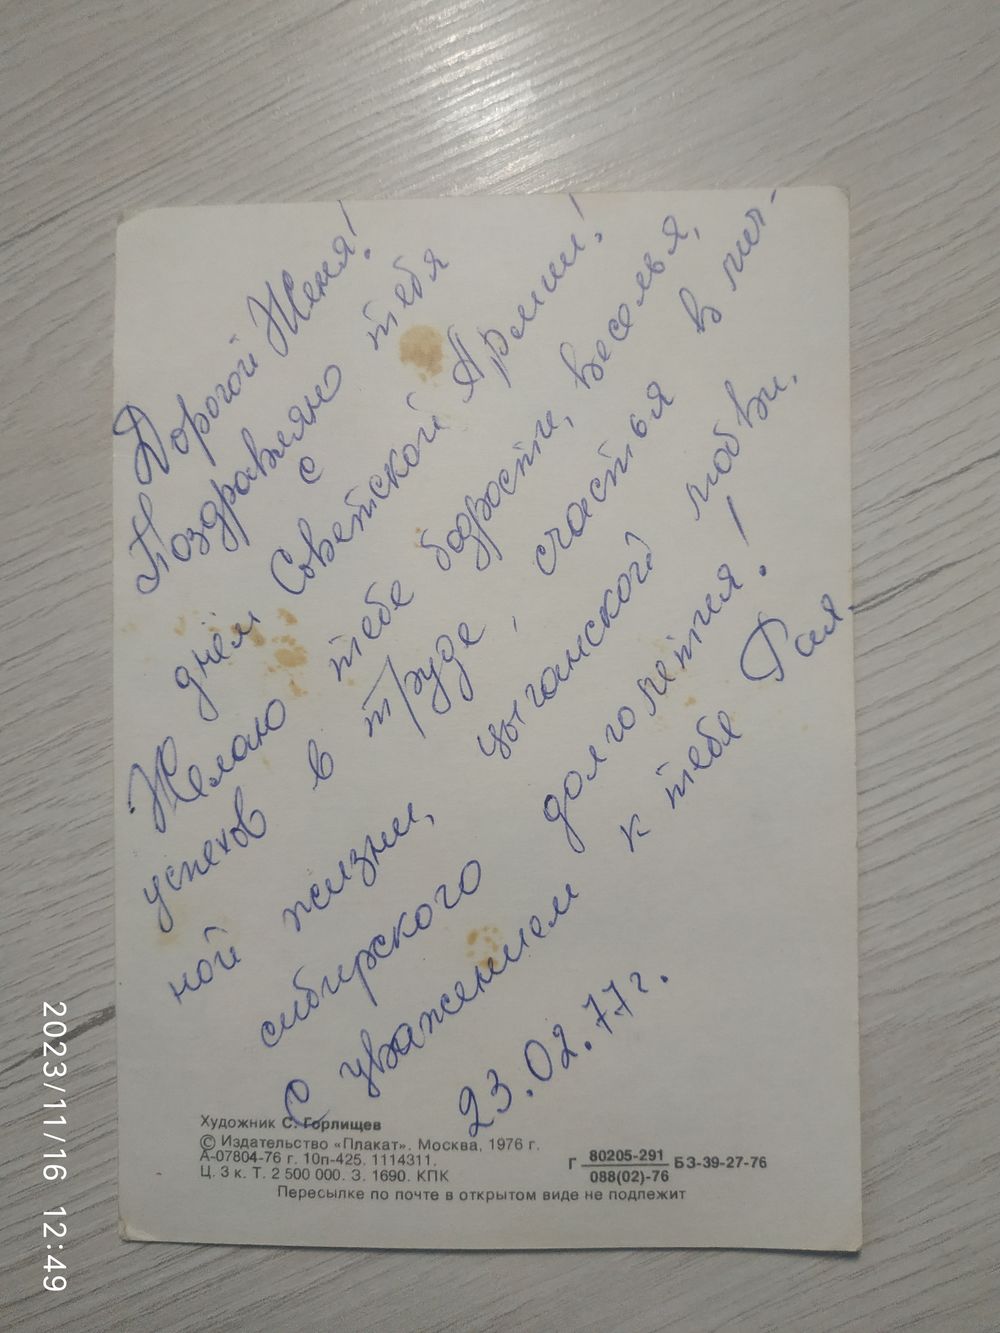 Дорогой Женя!
Поздравляю тебя
с
днём Советской Армии!
Желаю тебе бодрости, веселья,
успехов в труде, счастья в лич-
ной жизни, цыганской любви,
сибирского долголетия!
С уважением к тебе Рая.
23.02.77г.
Художник С. Горлищев
© Издательство «Плакат». Москва, 1976 г.
А-07804-76 г. 10п-425. 1114311.
Ц. 3 к. Т. 2 500 000. З. 1690. КПК
Г 80205-291 БЗ-39-27-76
088(02)-76
Пересылке по почте в открытом виде не подлежит
2023/11/16 12:49